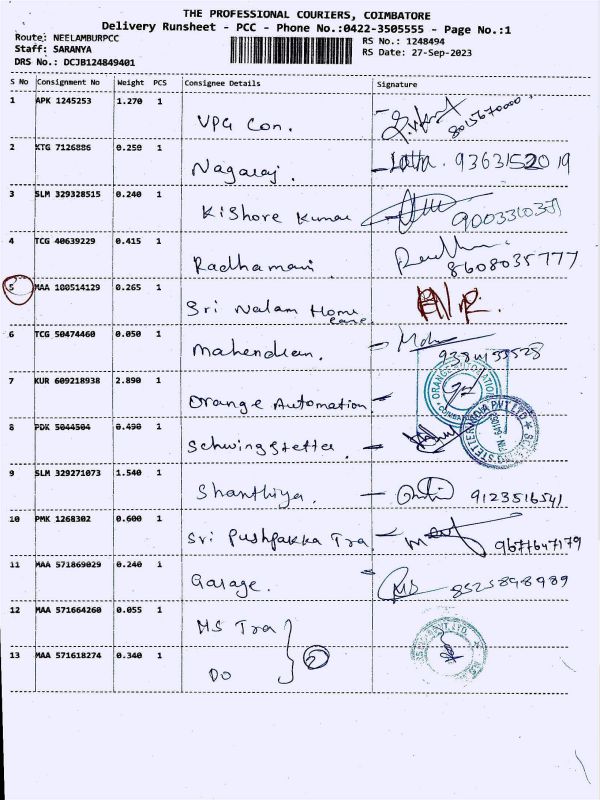 THE PROFESSIONAL COURIERS, COIMBATORE
Delivery Runsheet - PCC - Phone No.:0422-3505555 - Page No.:1
Route: NEELAMBURPCC
RS No.: 1248494
Staff: SARANYA
RS Date: 27-Sep-2023
DRS No.: DCJB124849401
S No Consignment No Weight PCS Consignee Details Signature
1 APK 1245253 1.270 1 VPG Con. 8015670000
2 KTG 7126886 0.250 1 Nagaraj. Latha. 9363152019
3 SLM 329328515 0.240 1 Kishore Kumar
4 TCG 40639229 0.415 1 Radhamani 8608035777
5 MAA 100514129 0.265 1 Sri Nalam Home
care
6 TCG 50474460 0.050 1 Mahendran.
7 KUR 609218938 2.890 1 Orange Automation
ORANGE AUTOMATION
8 PDK 5044504 0.490 1 Schwingstetter
9 SLM 329271073 1.540 1 Shanthiya. 9123516541
10 PMK 1268302 0.600 1 Sri Pushpakka Tra 9677647179
11 MAA 571869029 0.240 1 Garage. 8525898989
12 MAA 571664260 0.055 1 MS Tra
2
13 MAA 571618274 0.340 1 Do